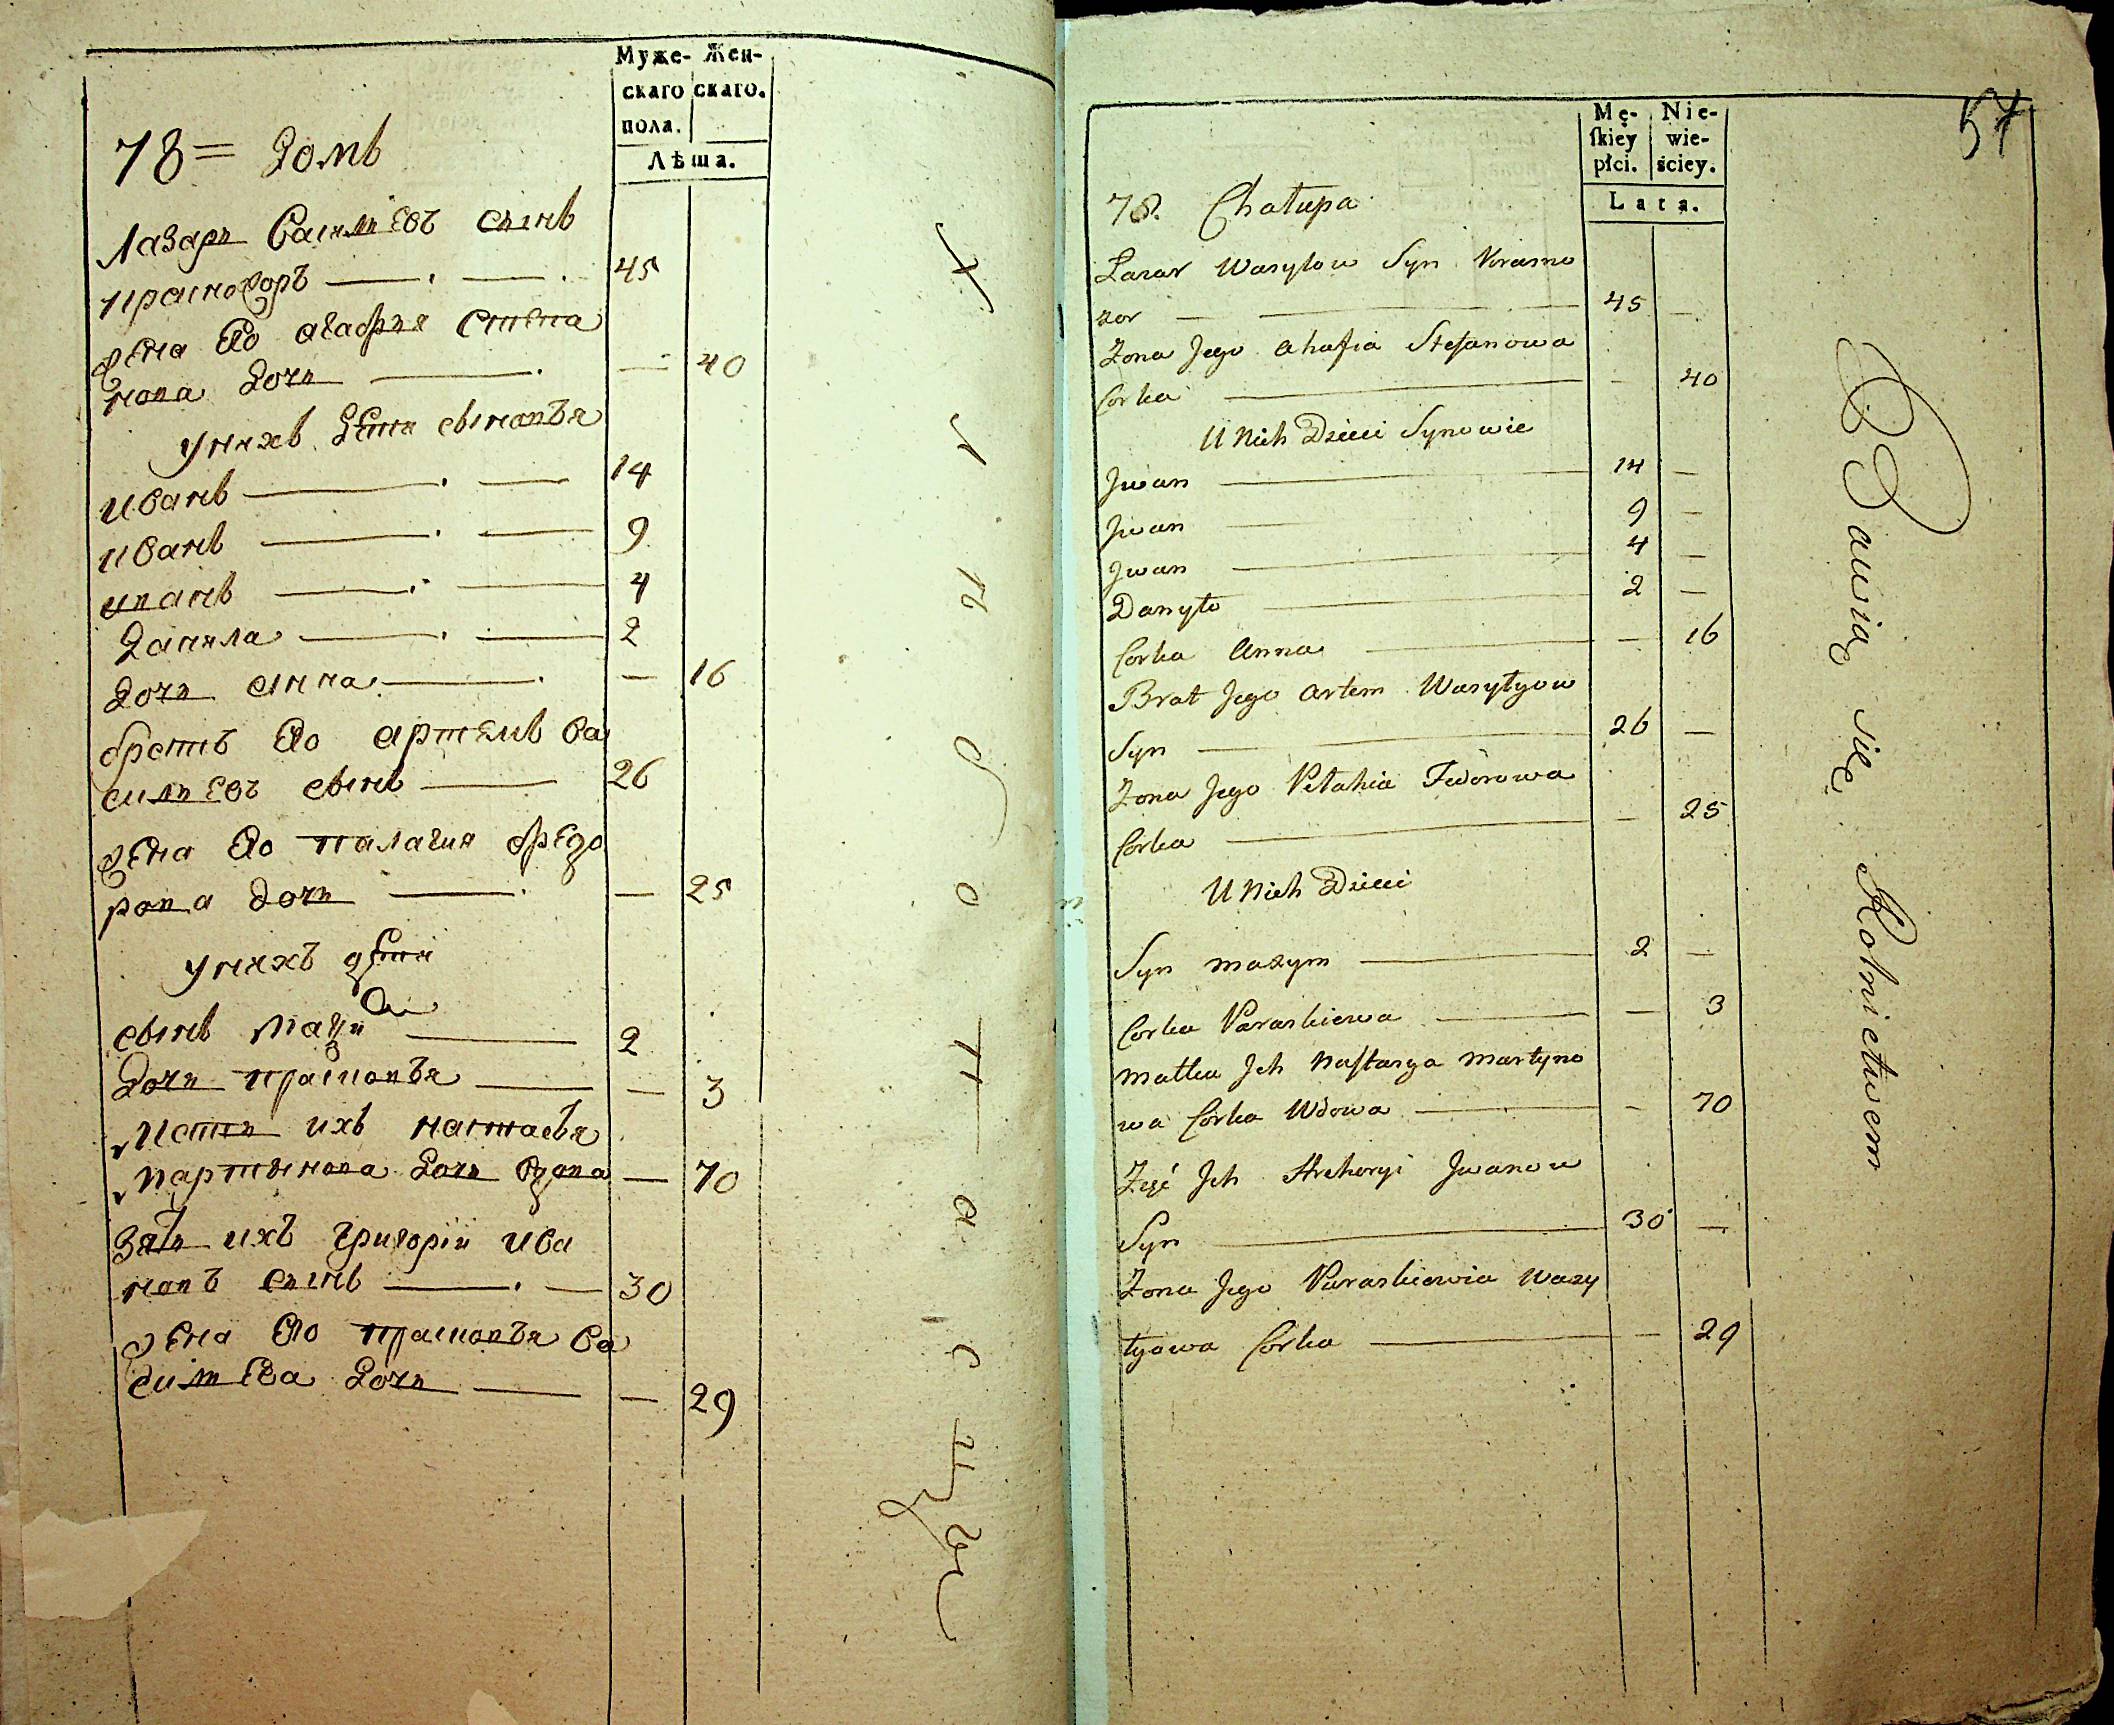 Муже- Жен-
скаго скаго.
пола.
Лѣта.
78 = Домъ
Лазарь Васильевъ сынъ
45
жена Его агафия Степа
нова дочь — 40
у нихъ дети сыновья
иванъ 14
иванъ 9
иванъ 4
данила 2
дочь анна — 16
братъ Его артемъ ва
сильевъ сынъ 26
жена Его палагия федо
рова дочь — 25
у нихъ дети
сынъ мазим 2
дочь — 3
мать ихъ настасья
мартынова дочь вдова — 70
зять ихъ григорій ива
новъ сынъ 30
жена Его ва
сильева дочь — 29
Хлѣбопашцы
57
Mę- Nie-
skiey wie-
płci. ściey.
Lata.
78. Chałupa
Lazar Wasylow Syn Krasno
zor — 45 —
Zona Jego Ahafia Stefanowa
Corka — 40
U Nich Dzieci Synowie
Jwan 14 —
Jwan 9 —
Jwan 4 —
Danyło 2 —
Corka Anna — 16
Brat Jego Artem Wasyłyow
Syn 26 —
Zona Jego Pełahia Fedorowa
Corka — 25
U Nich Dzieci
Syn Mazym 2 —
Corka Paraskiewa — 3
Matka Jch Nastasya Martyno
wa Córka Wdowa — 70
Zięć Jch Hrehoryi Jwanow
Syn 30 —
Zona Jego Paraskiewia Wasy
łyowa Córka — 29
Bawią się Rolnictwem